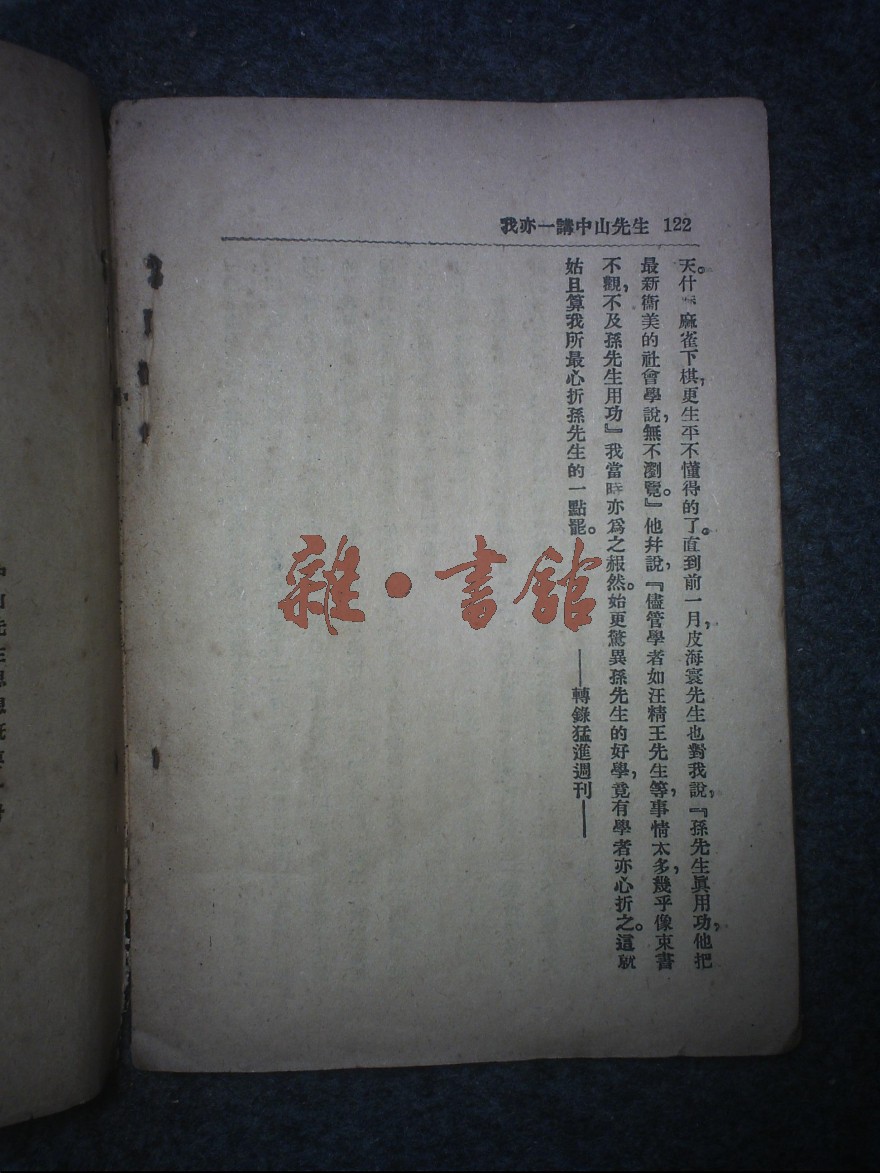 我亦一講中山先生 122
天。什麽麻雀下棋，更生平不懂得的了。直到前一月，皮海寰先生也對我說，『孫先生眞用功，他把
最新衞美的社會學說，無不瀏覽。』他幷說，『儘管學者如汪精王先生等，事情太多，幾乎像束書
不觀，不及孫先生用功』我當時亦爲之赧然。始更驚異孫先生的好學，竟有學者亦心折之。這就
姑且算我所最心折孫先生的一點罷。
——轉錄猛進週刊——
雜·書館